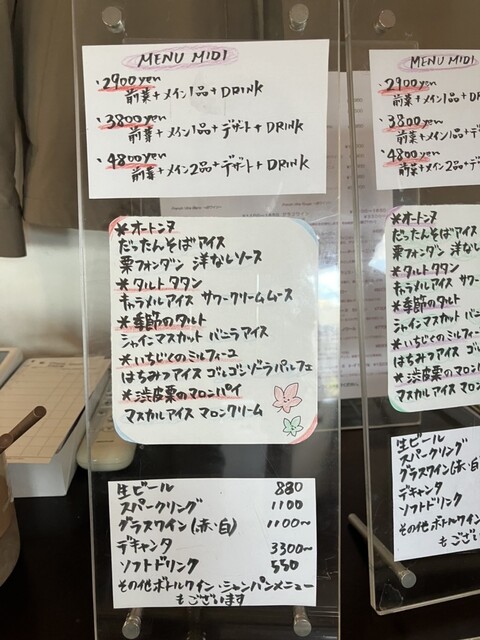 MENU MIDI
・2900yen
前菜+メイン1品+DRINK
・3800yen
前菜+メイン1品+デザート+DRINK
・4800yen
前菜+メイン2品+デザート+DRINK
*オートンヌ
だったんそばアイス
栗フォンダン 洋なしソース
*タルトタタン
キャラメルアイス サワークリームムース
*季節のタルト
シャインマスカット バニラアイス
*いちじくのミルフィーユ
はちみつアイス ゴルゴンゾーラパルフェ
*渋皮栗のマロンパイ
マスカルアイス マロンクリーム
生ビール 880
スパークリング 1100
グラスワイン(赤・白) 1100~
デキャンタ 3300~
ソフトドリンク 550
その他ボトルワイン・シャンパンメニュー
もございます
MENU MIDI
・2900yen
前菜+メイン1
・3800yen
前菜+メイン1品+デ
・4800yen
前菜+メイン2品+デ
*オートンヌ
だったんそばアイス
栗フォンダン 洋な
*タルトタタン
キャラメルアイス サワー
*季節のタルト
シャインマスカット バニ
*いちじくのミルフィー
はちみつアイス ゴルゴ
*渋皮栗のマロン
マスカルアイス マロン
生ビール
スパークリング
グラスワイン(赤・
デキャンタ
ソフトドリンク
その他ボトルワイ
もござい